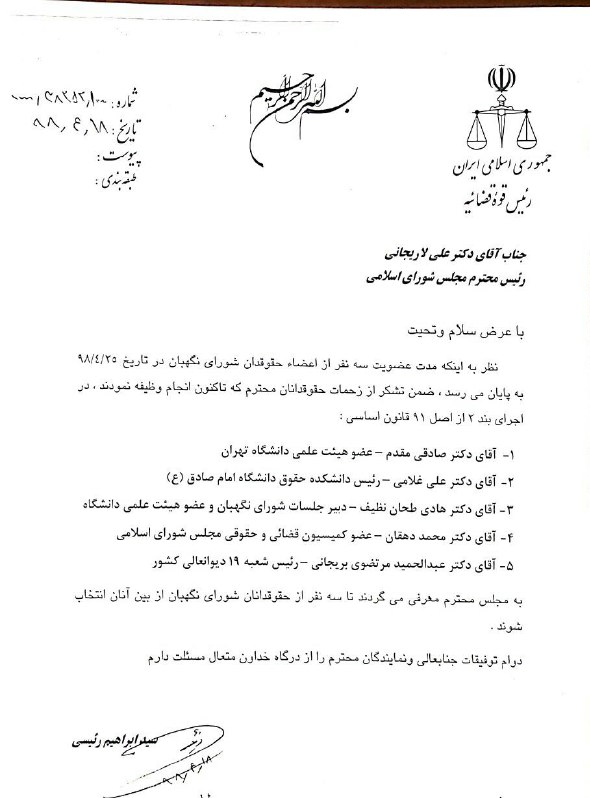 بسم الله الرحمن الرحیم
جمهوری اسلامی ایران
رئیس قوه قضائیه
شماره :
تاریخ : ۹۸٫۴٫۱۸
پیوست :
طبقه‌بندی :
جناب آقای دکتر علی لاریجانی
رئیس محترم مجلس شورای اسلامی
با عرض سلام وتحیت
نظر به اینکه مدت عضویت سه نفر از اعضاء حقوقدان شورای نگهبان در تاریخ ۹۸/۴/۲۵
به پایان می رسد ، ضمن تشکر از زحمات حقوقدانان محترم که تاکنون انجام وظیفه نمودند ، در
اجرای بند ۲ از اصل ۹۱ قانون اساسی :
۱- آقای دکتر صادقی مقدم – عضو هیئت علمی دانشگاه تهران
۲- آقای دکتر علی غلامی – رئیس دانشکده حقوق دانشگاه امام صادق (ع)
۳- آقای دکتر هادی طحان نظیف – دبیر جلسات شورای نگهبان و عضو هیئت علمی دانشگاه
۴- آقای دکتر محمد دهقان – عضو کمیسیون قضائی و حقوقی مجلس شورای اسلامی
۵- آقای دکتر عبدالحمید مرتضوی بریجانی – رئیس شعبه ۱۹ دیوانعالی کشور
به مجلس محترم معرفی می گردند تا سه نفر از حقوقدانان شورای نگهبان از بین آنان انتخاب
شوند .
دوام توفیقات جنابعالی ونمایندگان محترم را از درگاه خدارن متعال مسئلت دارم
سیدابراهیم رئیسی
۹۸٫۴٫۱۸